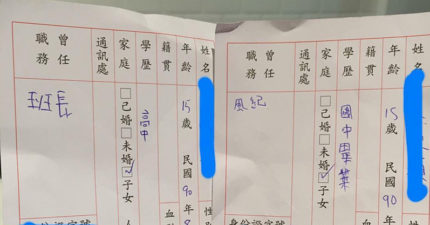 姓名
年齡 15歲 民國90年
籍貫
學歷 高中
家庭 □已婚□未婚☑子女
通訊處
曾任職務 班長
姓名
年齡 15歲 民國90年
籍貫
學歷 國中畢業
家庭 □已婚□未婚☑子女
通訊處
曾任職務 風紀
身份證字號